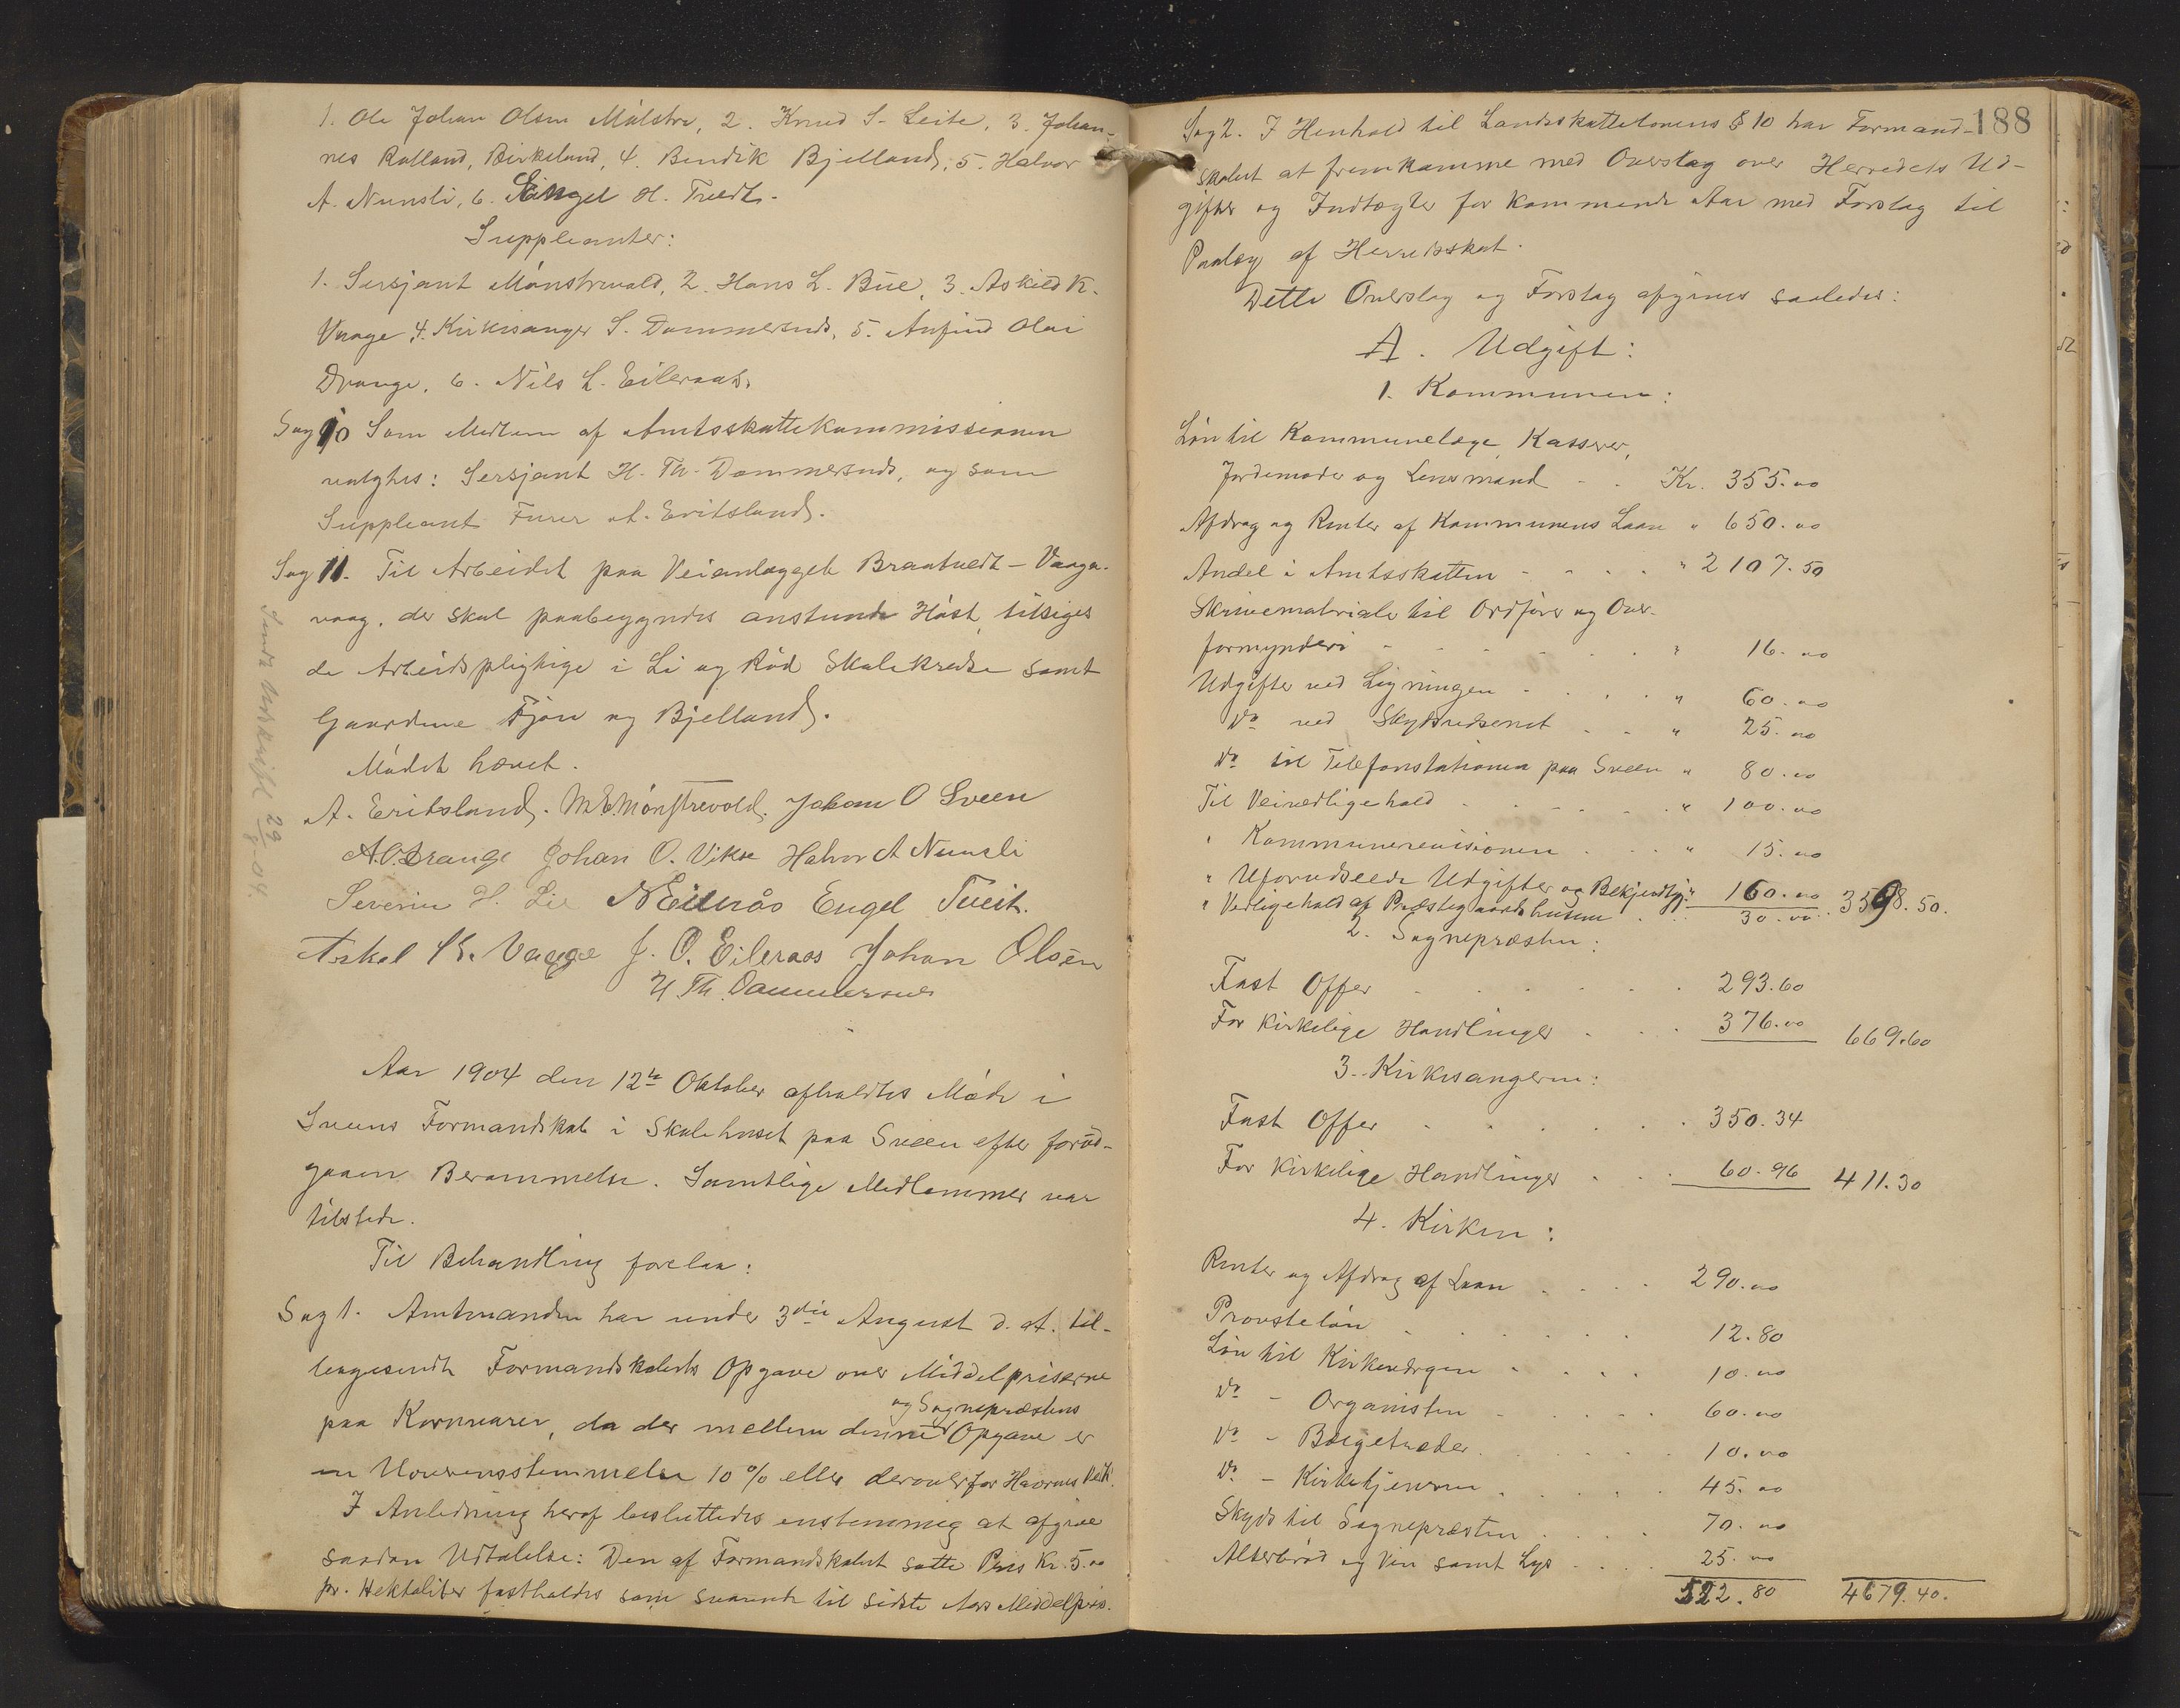 1. Ole Johan Olsen Målstre, 2. Knud S. Leite, 3. Johan-
nes Rolland, Birkeland, 4. Bendik Bjelland, 5. Halvor
A. Nunsli, 6. Engel H. Tvedt.
Suppleanter:
1. Sersjant Mönstrevold, 2. Hans L. Bue, 3. Askild K.
Vaage, 4. Kirkesanger S. Dommersnds, 5. Anfind Olai
Drange, 6. Nils L. Eileraas.
Sag 10 Som Medlem af Amtsskattekommissionen
valgtes: Sersjant H. Th. Dommersnds, og som
Suppleant Furer A. Eritsland.
Sag 11. Til Arbeidet paa Veianlægget Braatvedt - Vaaga-
vaag, der skal paabegyndes anstundende Høst, tilsiges
de Arbeidspligtige i Li og Rød Skolekredse samt
Gaardene Fjon og Bjelland.
Mødet hævet.
A. Eritsland. M. E. Mönstrevold. Johan O Sveen
A. O. Drange Johan O. Vikse Halvor A Nunsli
Severin H. Lie N Eilerås Engel Tveit.
Askel K. Vaage J. O. Eileraas Johan Olsen
H. Th. Dommersnes
Sendt Udskrift 29/8 04.
Aar 1904 den 12te Oktober afholdtes Møde i
Sveens Formandskab i Skolehuset paa Sveen efter forud-
gaaen Berammelse. Samtlige Medlemmer var
tilstede.
Til Behandling forelaa:
Sag 1. Amtmanden har under 3die August d. A. til-
bagesendt Formandskabets Opgave over Middelpriserne
og Sognepræstens
paa Kornvarer, da der mellem denne Opgave er
en Uoverensstemmelse 10 % eller derover for Havrens Vedk.
I Anledning heraf besluttedes enstemmig at afgive
saadan Udtalelse: Den af Formandskabet satte Pris Kr. 5.00
pr. Hektoliter fastholdes som svarende til sidste Aars Middelpris.
188
Sag 2. I Henhold til Landsskattelovens § 10 har Formand-
skabet at fremkomme med Overslag over Herredets Ud-
gifter og Indtægter for kommende Aar med Forslag til
Paalæg af Herredsskat.
Dette Overslag og Forslag afgives saaledes:
A. Udgift:
1. Kommunen:
Løn til Kommunelæge, Kasserer,
Jordemoder og Lensmand - . Kr. 355.00
Afdrag og Renter af Kommunens Laan " 650.00
Andel i Amtsskatten - - - . " 2107.50
Skrivematriale til Ordfører og Over-
formynderi - - - - . . " 16.00
Udgifter ved Ligningen - . . . " 60.00
Do ved Skydsvæsenet . - " 25.00
Do til Telefonstationen paa Sveen " 80.00
Til Veivedligehold . . . . . " 100.00
" Kommunerevisionen . . . " 15.00
" Uforudseede Udgifter og Bekjendtgj. " 160.00 3598.50.
" Vedligehold af Præstegaardshusene . . 30.00
2. Sognepræsten:
Fast Offer . . . . . . 293.60
For kirkelige Handlinger . . . 376.00 669.60
3. Kirkesangeren:
Fast Offer . . . . . . 350.34
For Kirkelige Handlinger . . . 60.96 411.30
4. Kirken:
Renter og Afdrag af Laan . . . 290.00
Provsteløn . . . . . . 12.80
Løn til Kirkeværgen . . . . 10.00
Do - Organisten - . . . . 60.00
Do - Bælgetræder . . . . . 10.00
Do - Kirketjeneren . . . . . 45.00
Skyds til Sognepræsten . . . . 70.00
Alterbrød og Vin samt Lys . . . 25.00
522.80 4679.40.